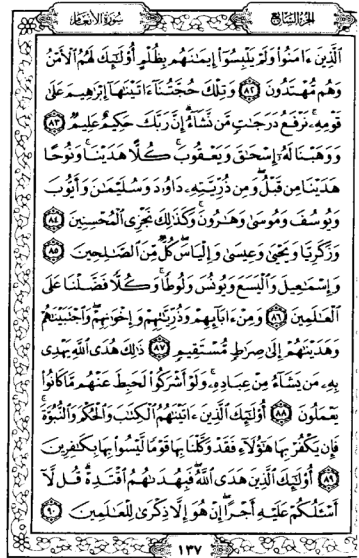 الجزء السابع
سورة الأنعام
ٱلَّذِينَ ءَامَنُوا۟ وَلَمْ يَلْبِسُوٓا۟ إِيمَٰنَهُم بِظُلْمٍ أُو۟لَٰٓئِكَ لَهُمُ ٱلْأَمْنُ
وَهُم مُّهْتَدُونَ ٨٢ وَتِلْكَ حُجَّتُنَآ ءَاتَيْنَٰهَآ إِبْرَٰهِيمَ عَلَىٰ
قَوْمِهِۦ نَرْفَعُ دَرَجَٰتٍ مَّن نَّشَآءُ إِنَّ رَبَّكَ حَكِيمٌ عَلِيمٌ ٨٣
وَوَهَبْنَا لَهُۥٓ إِسْحَٰقَ وَيَعْقُوبَ كُلًّا هَدَيْنَا وَنُوحًا
هَدَيْنَا مِن قَبْلُ وَمِن ذُرِّيَّتِهِۦ دَاوُۥدَ وَسُلَيْمَٰنَ وَأَيُّوبَ
وَيُوسُفَ وَمُوسَىٰ وَهَٰرُونَ وَكَذَٰلِكَ نَجْزِى ٱلْمُحْسِنِينَ ٨٤
وَزَكَرِيَّا وَيَحْيَىٰ وَعِيسَىٰ وَإِلْيَاسَ كُلٌّ مِّنَ ٱلصَّٰلِحِينَ ٨٥
وَإِسْمَٰعِيلَ وَٱلْيَسَعَ وَيُونُسَ وَلُوطًا وَكُلًّا فَضَّلْنَا عَلَى
ٱلْعَٰلَمِينَ ٨٦ وَمِنْ ءَابَآئِهِمْ وَذُرِّيَّٰتِهِمْ وَإِخْوَٰنِهِمْ وَٱجْتَبَيْنَٰهُمْ
وَهَدَيْنَٰهُمْ إِلَىٰ صِرَٰطٍ مُّسْتَقِيمٍ ٨٧ ذَٰلِكَ هُدَى ٱللَّهِ يَهْدِى
بِهِۦ مَن يَشَآءُ مِنْ عِبَادِهِۦ وَلَوْ أَشْرَكُوا۟ لَحَبِطَ عَنْهُم مَّا كَانُوا۟
يَعْمَلُونَ ٨٨ أُو۟لَٰٓئِكَ ٱلَّذِينَ ءَاتَيْنَٰهُمُ ٱلْكِتَٰبَ وَٱلْحُكْمَ وَٱلنُّبُوَّةَ
فَإِن يَكْفُرْ بِهَا هَٰٓؤُلَآءِ فَقَدْ وَكَّلْنَا بِهَا قَوْمًا لَّيْسُوا۟ بِهَا بِكَٰفِرِينَ
٨٩ أُو۟لَٰٓئِكَ ٱلَّذِينَ هَدَى ٱللَّهُ فَبِهُدَىٰهُمُ ٱقْتَدِهْ قُل لَّآ
أَسْـَٔلُكُمْ عَلَيْهِ أَجْرًا إِنْ هُوَ إِلَّا ذِكْرَىٰ لِلْعَٰلَمِينَ ٩٠
١٣٧